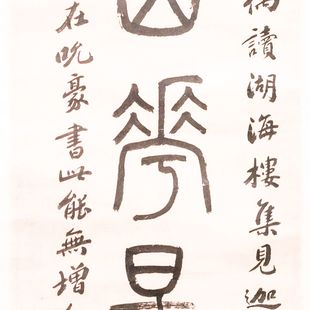 偶讀湖海樓集見迦
華
在吮豪書此能無增